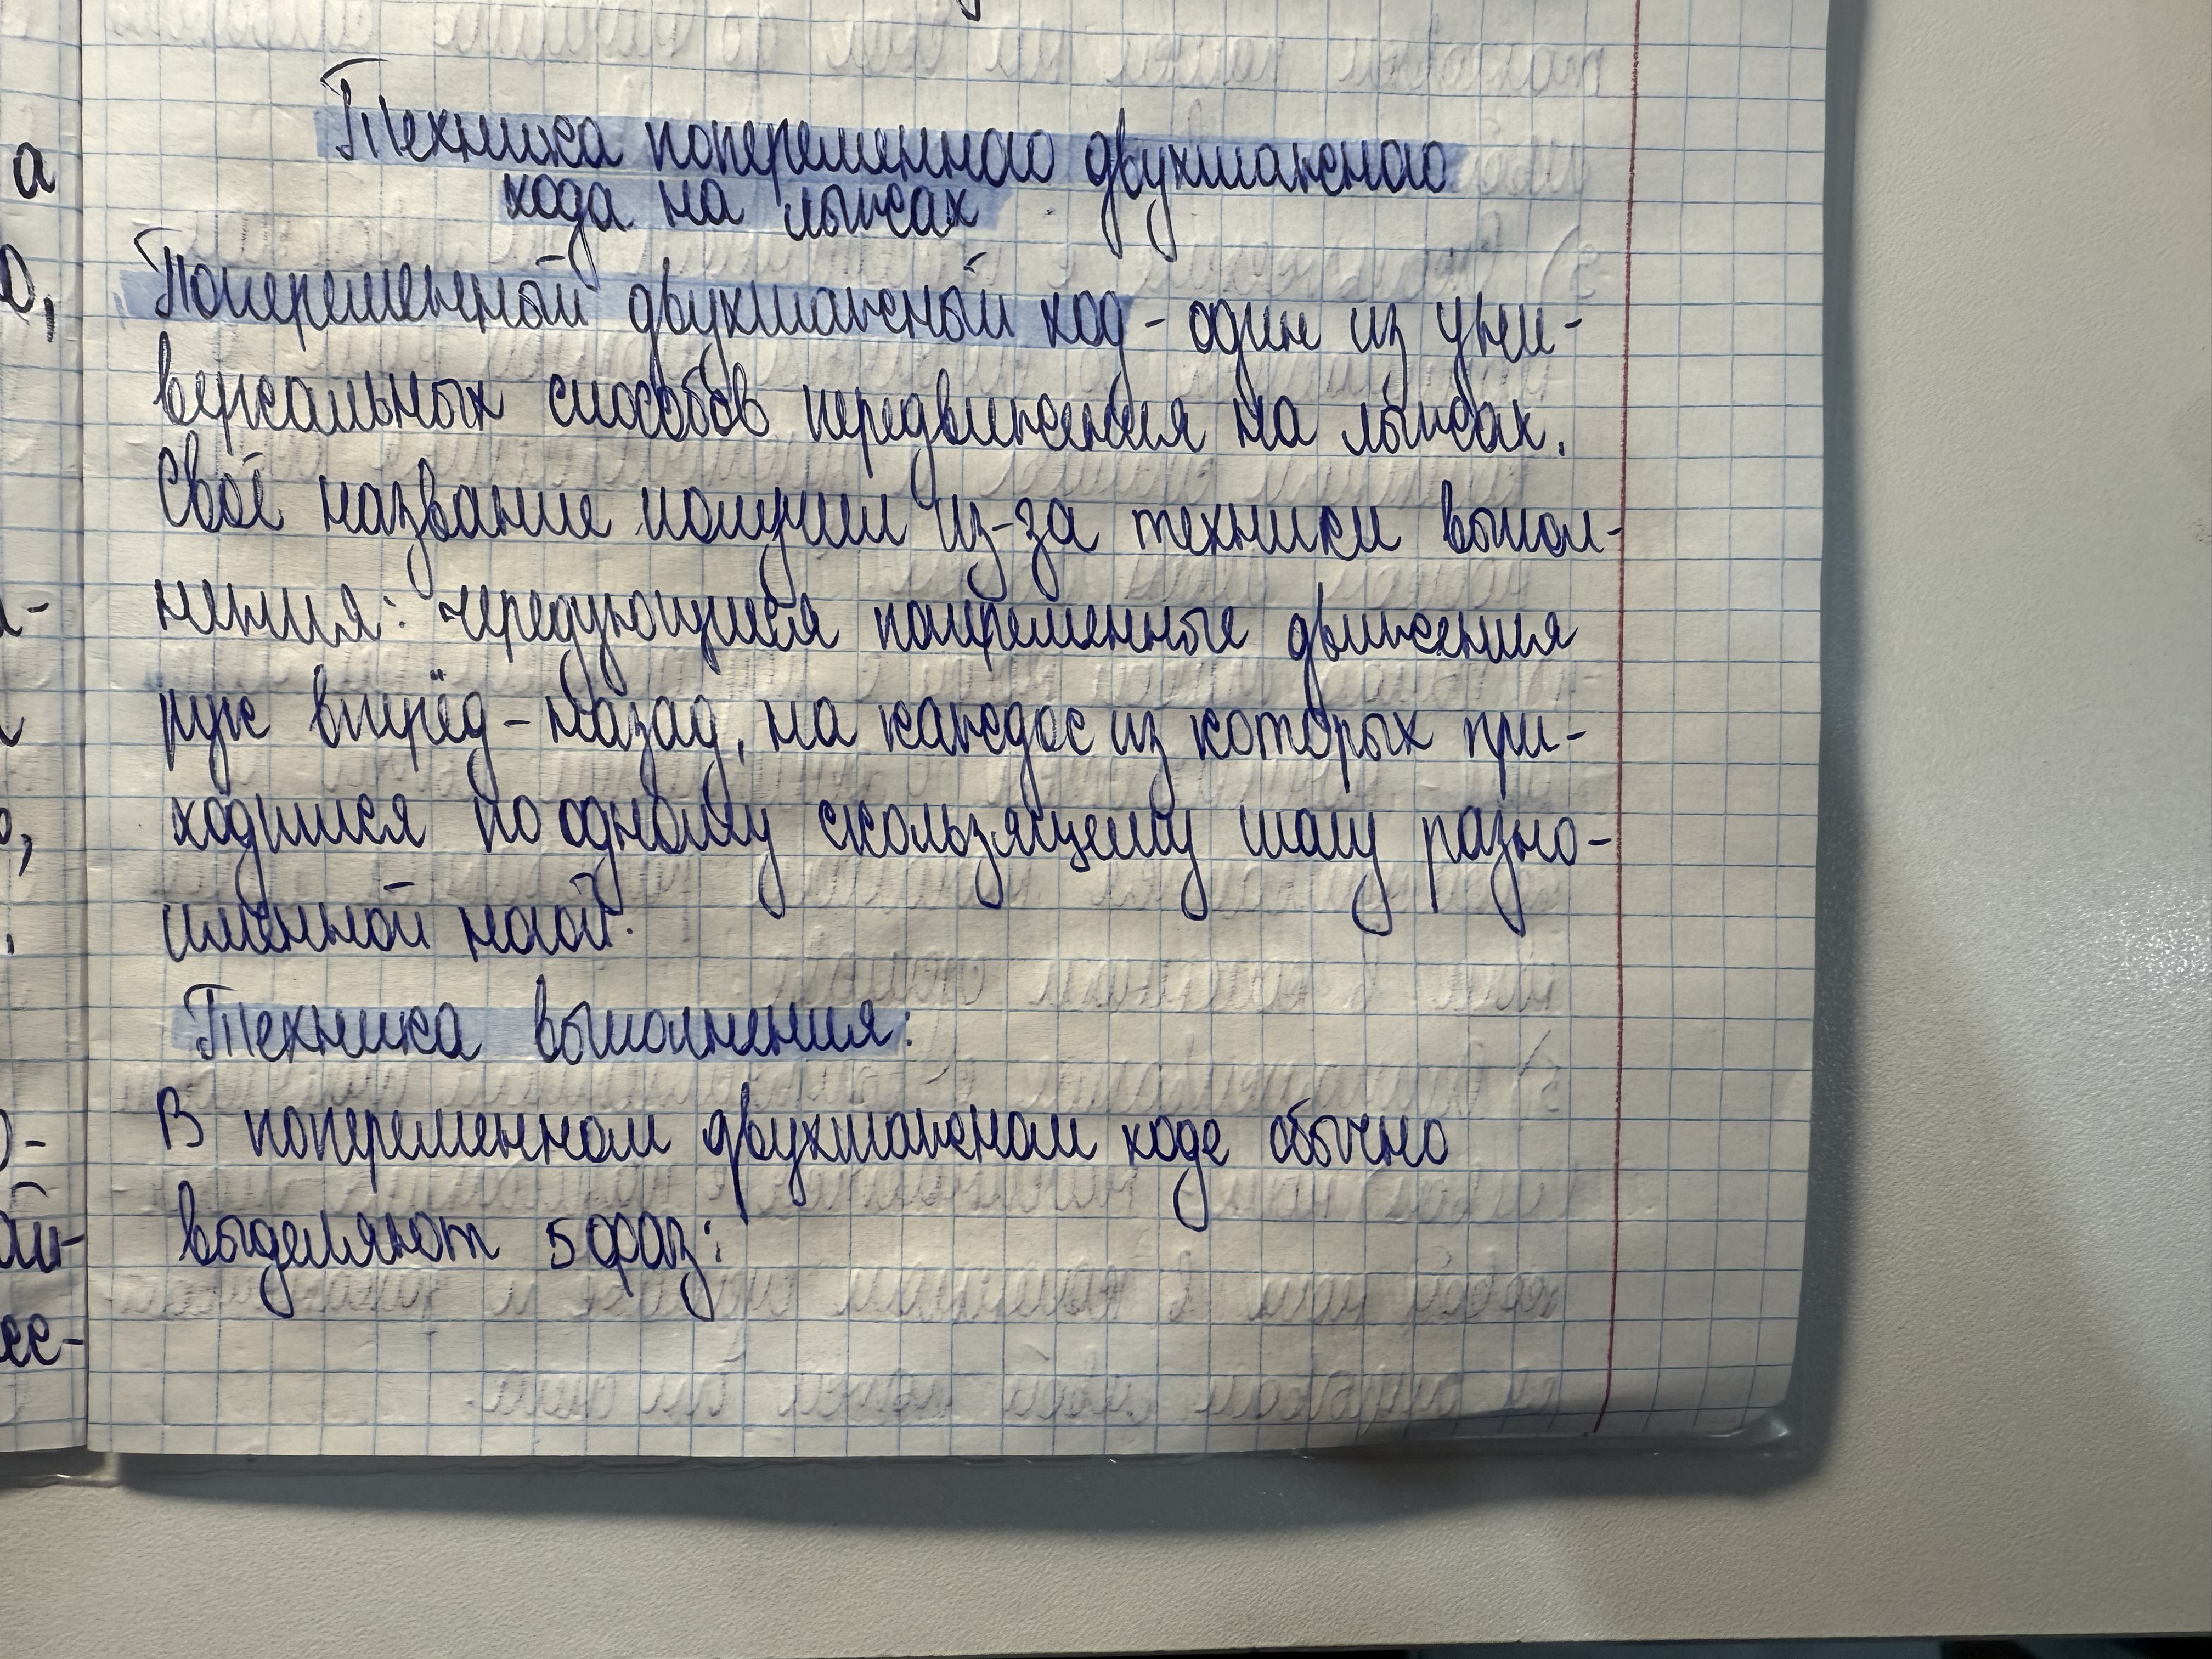 Техника попеременного двухшажного
хода на лыжах
Попеременный двухшажный ход - один из уни-
версальных способов передвижения на лыжах.
Своё название получил из-за техники выпол-
нения: чередующиеся попеременные движения
рук вперёд-назад, на каждое из которых при-
ходится по одному скользящему шагу разно-
именной ногой.
Техника выполнения:
В попеременном двухшажном ходе обычно
выделяют 5 фаз: